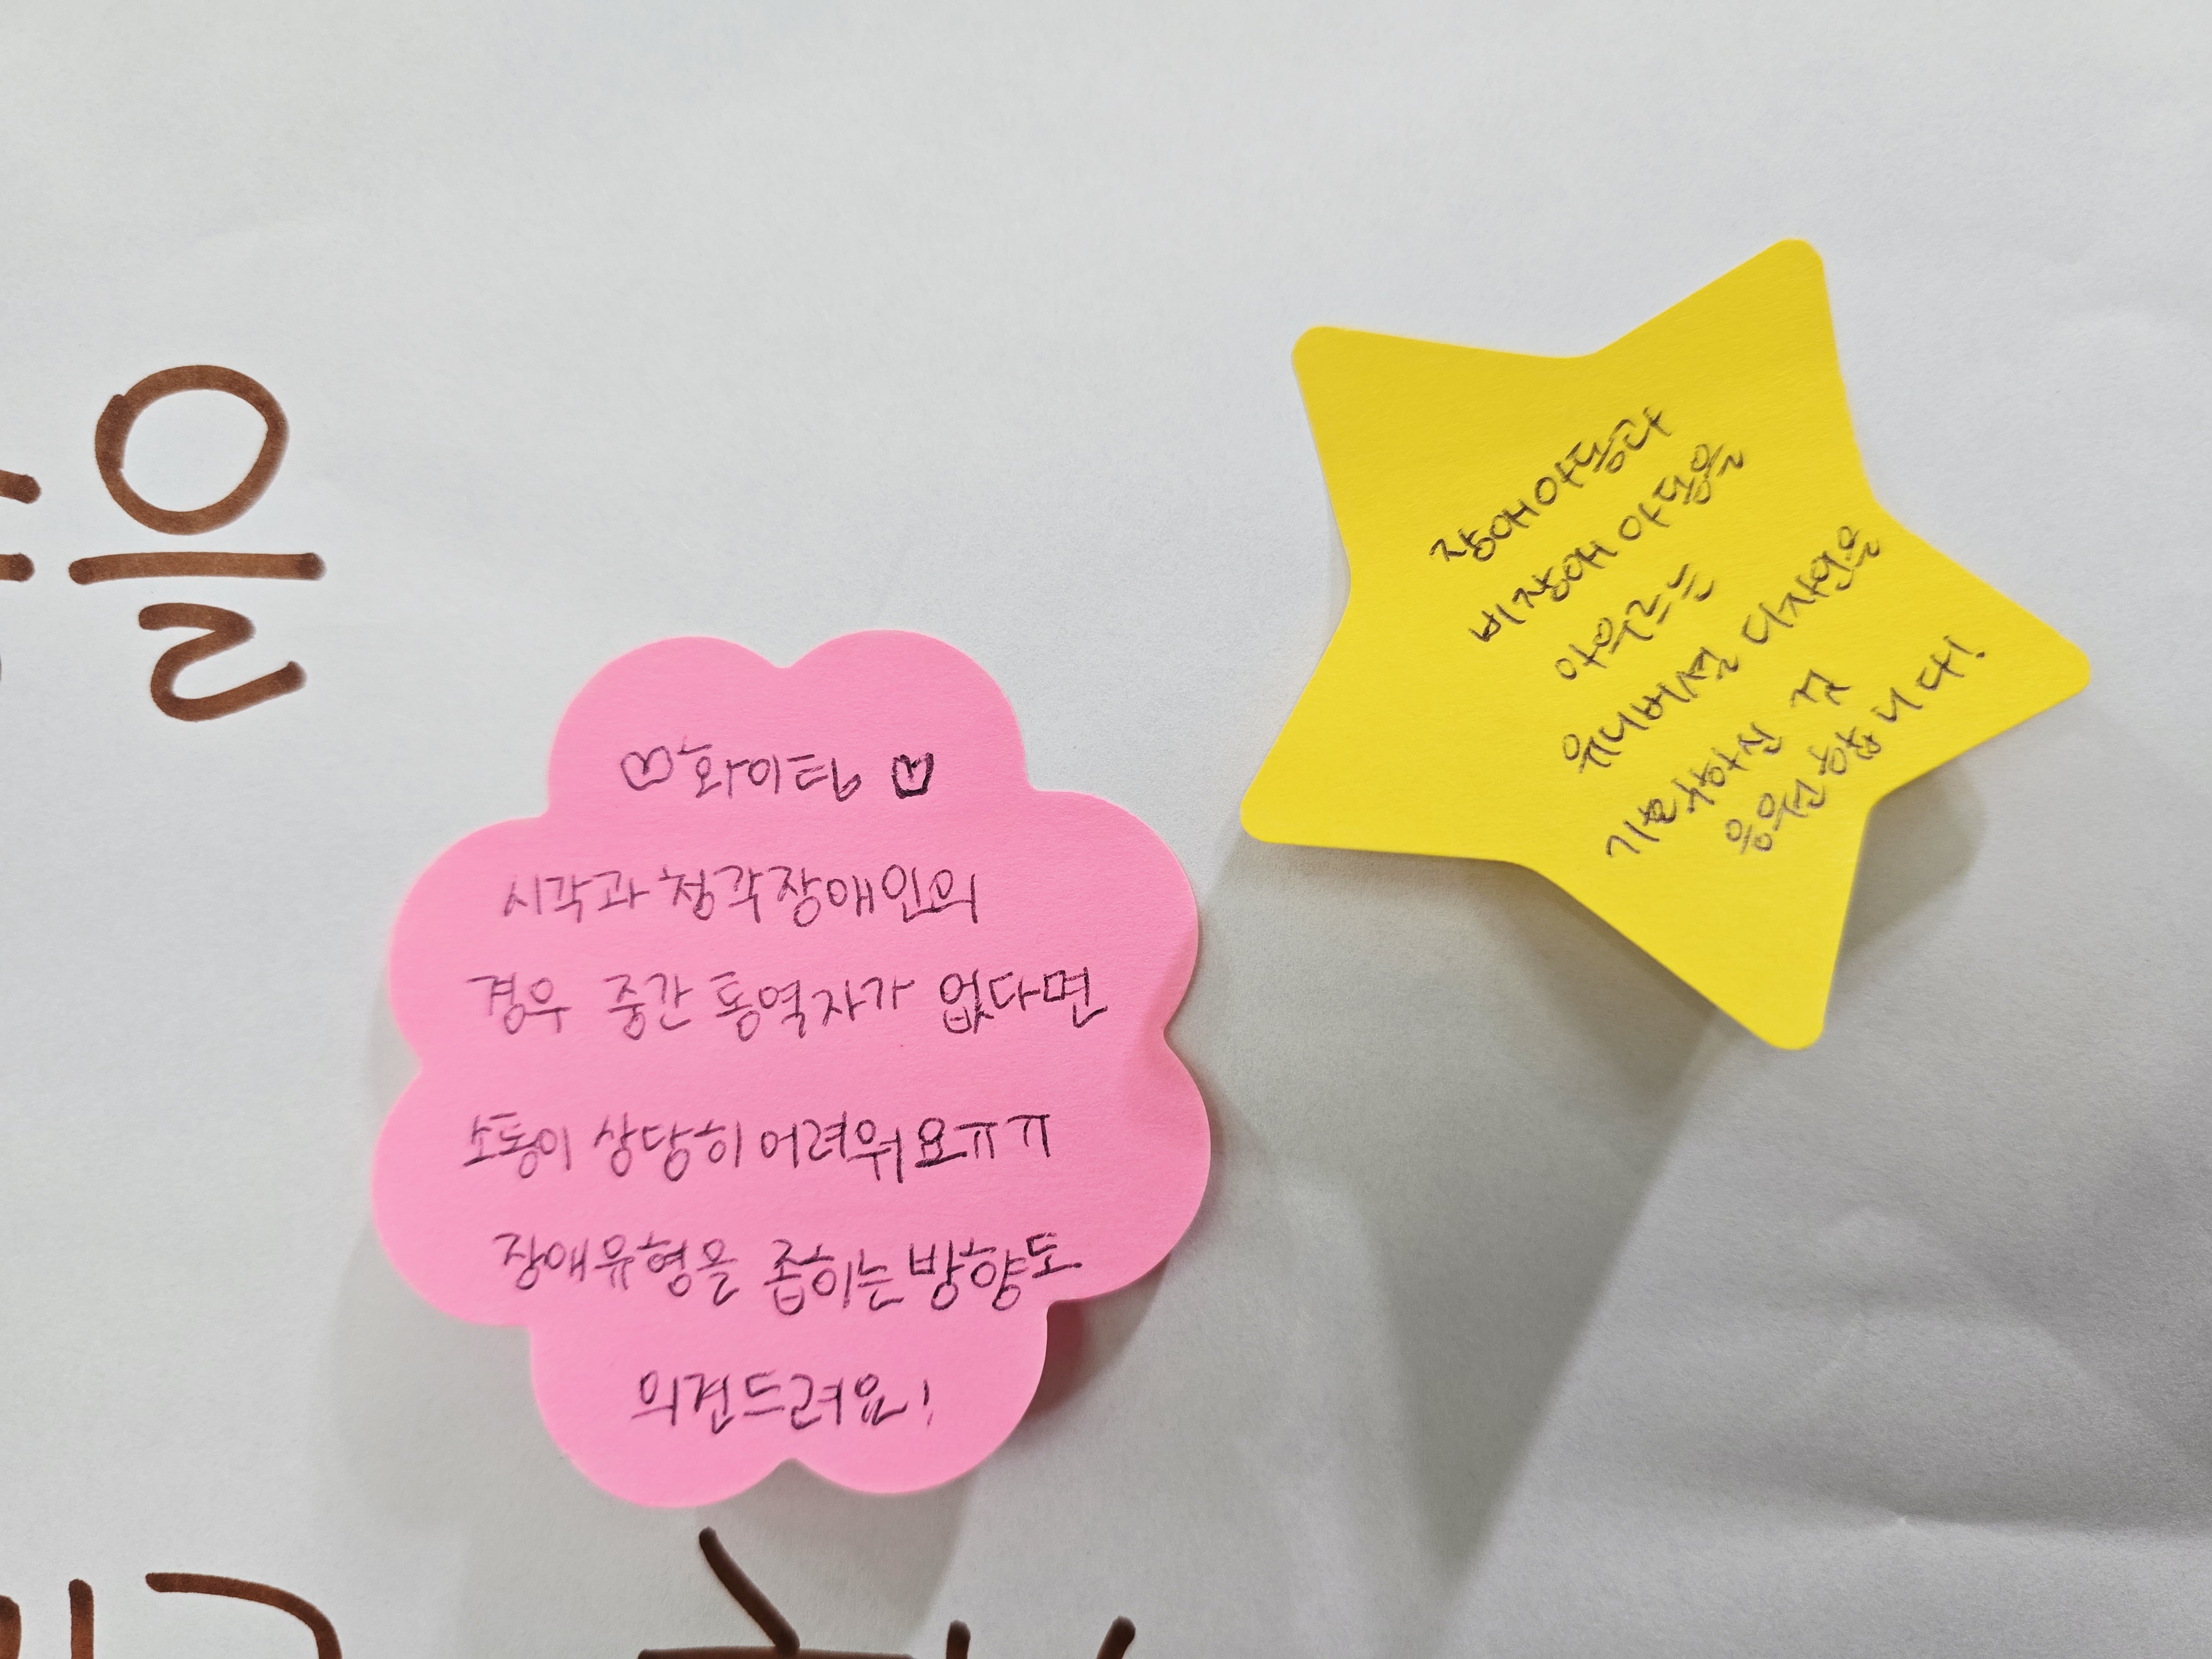 을
♡화이팅♡
시각과 청각장애인의
경우 중간 통역자가 없다면
소통이 상당히 어려워요ㅠㅠ
장애유형을 좁히는 방향도
의견드려요!
장애아동과
비장애 아동을
아우르는
유니버셜 디자인을
기획하신 것
응원합니다!